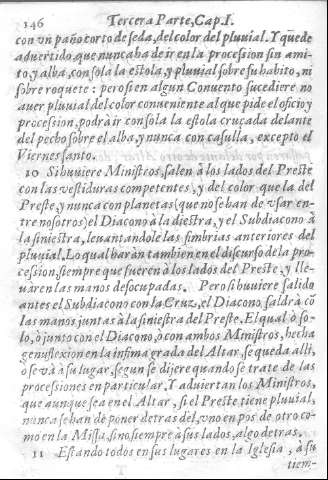 146 Tercera Parte, Cap. I.
con vn paño corto de seda, del color del pluuial. Y quede
aduertido, que nuncaha de ir en la procession sin ami-
to, y alba, con sola la estola, y pluuial sobre su habito, ni
sobre roquete: pero si en algun Conuento sucediere no
auer pluuial del color conueniente al que pide el oficio y
procession, podrà ir con sola la estola cruçada delante
del pecho sobre el alba, y nunca con casulla, excepto el
Viernes santo.
10 Si huuiere Ministros, salen à los lados del Preste
con las vestiduras competentes, y del color que la del
Preste, y nunca con planetas (que no se han de vsar en-
tre nosotros) el Diacono à la diestra, y el Subdiacono à
la siniestra, leuantandole las fimbrias anteriores del
pluuial. Lo qual haràn tambien en el discurso de la pro-
cession, siempre que fueren à los lados del Preste, y lle-
uàren las manos desocupadas. Pero si huuiere salido
antes el Subdiacono con la Cruz, el Diacono saldrà cõ
las manos juntas à la siniestra del Preste. El qual ò so-
lo, ò junto con el Diacono, ò con ambos Ministros, hecha
genuflexion en la infima grada del Altar, se queda alli,
o se và à su lugar, segun se dijere quando se trate de las
processiones en particular. Y aduiertan los Ministros,
que aunque sea en el Altar, si el Preste tiene pluuial,
nunca se han de poner detras del, vno en pos de otro co-
mo en la Missa, sino, siempre à sus lados, algo detras.
11 Estando todos en sus lugares en la Iglesia, à su
tiem-